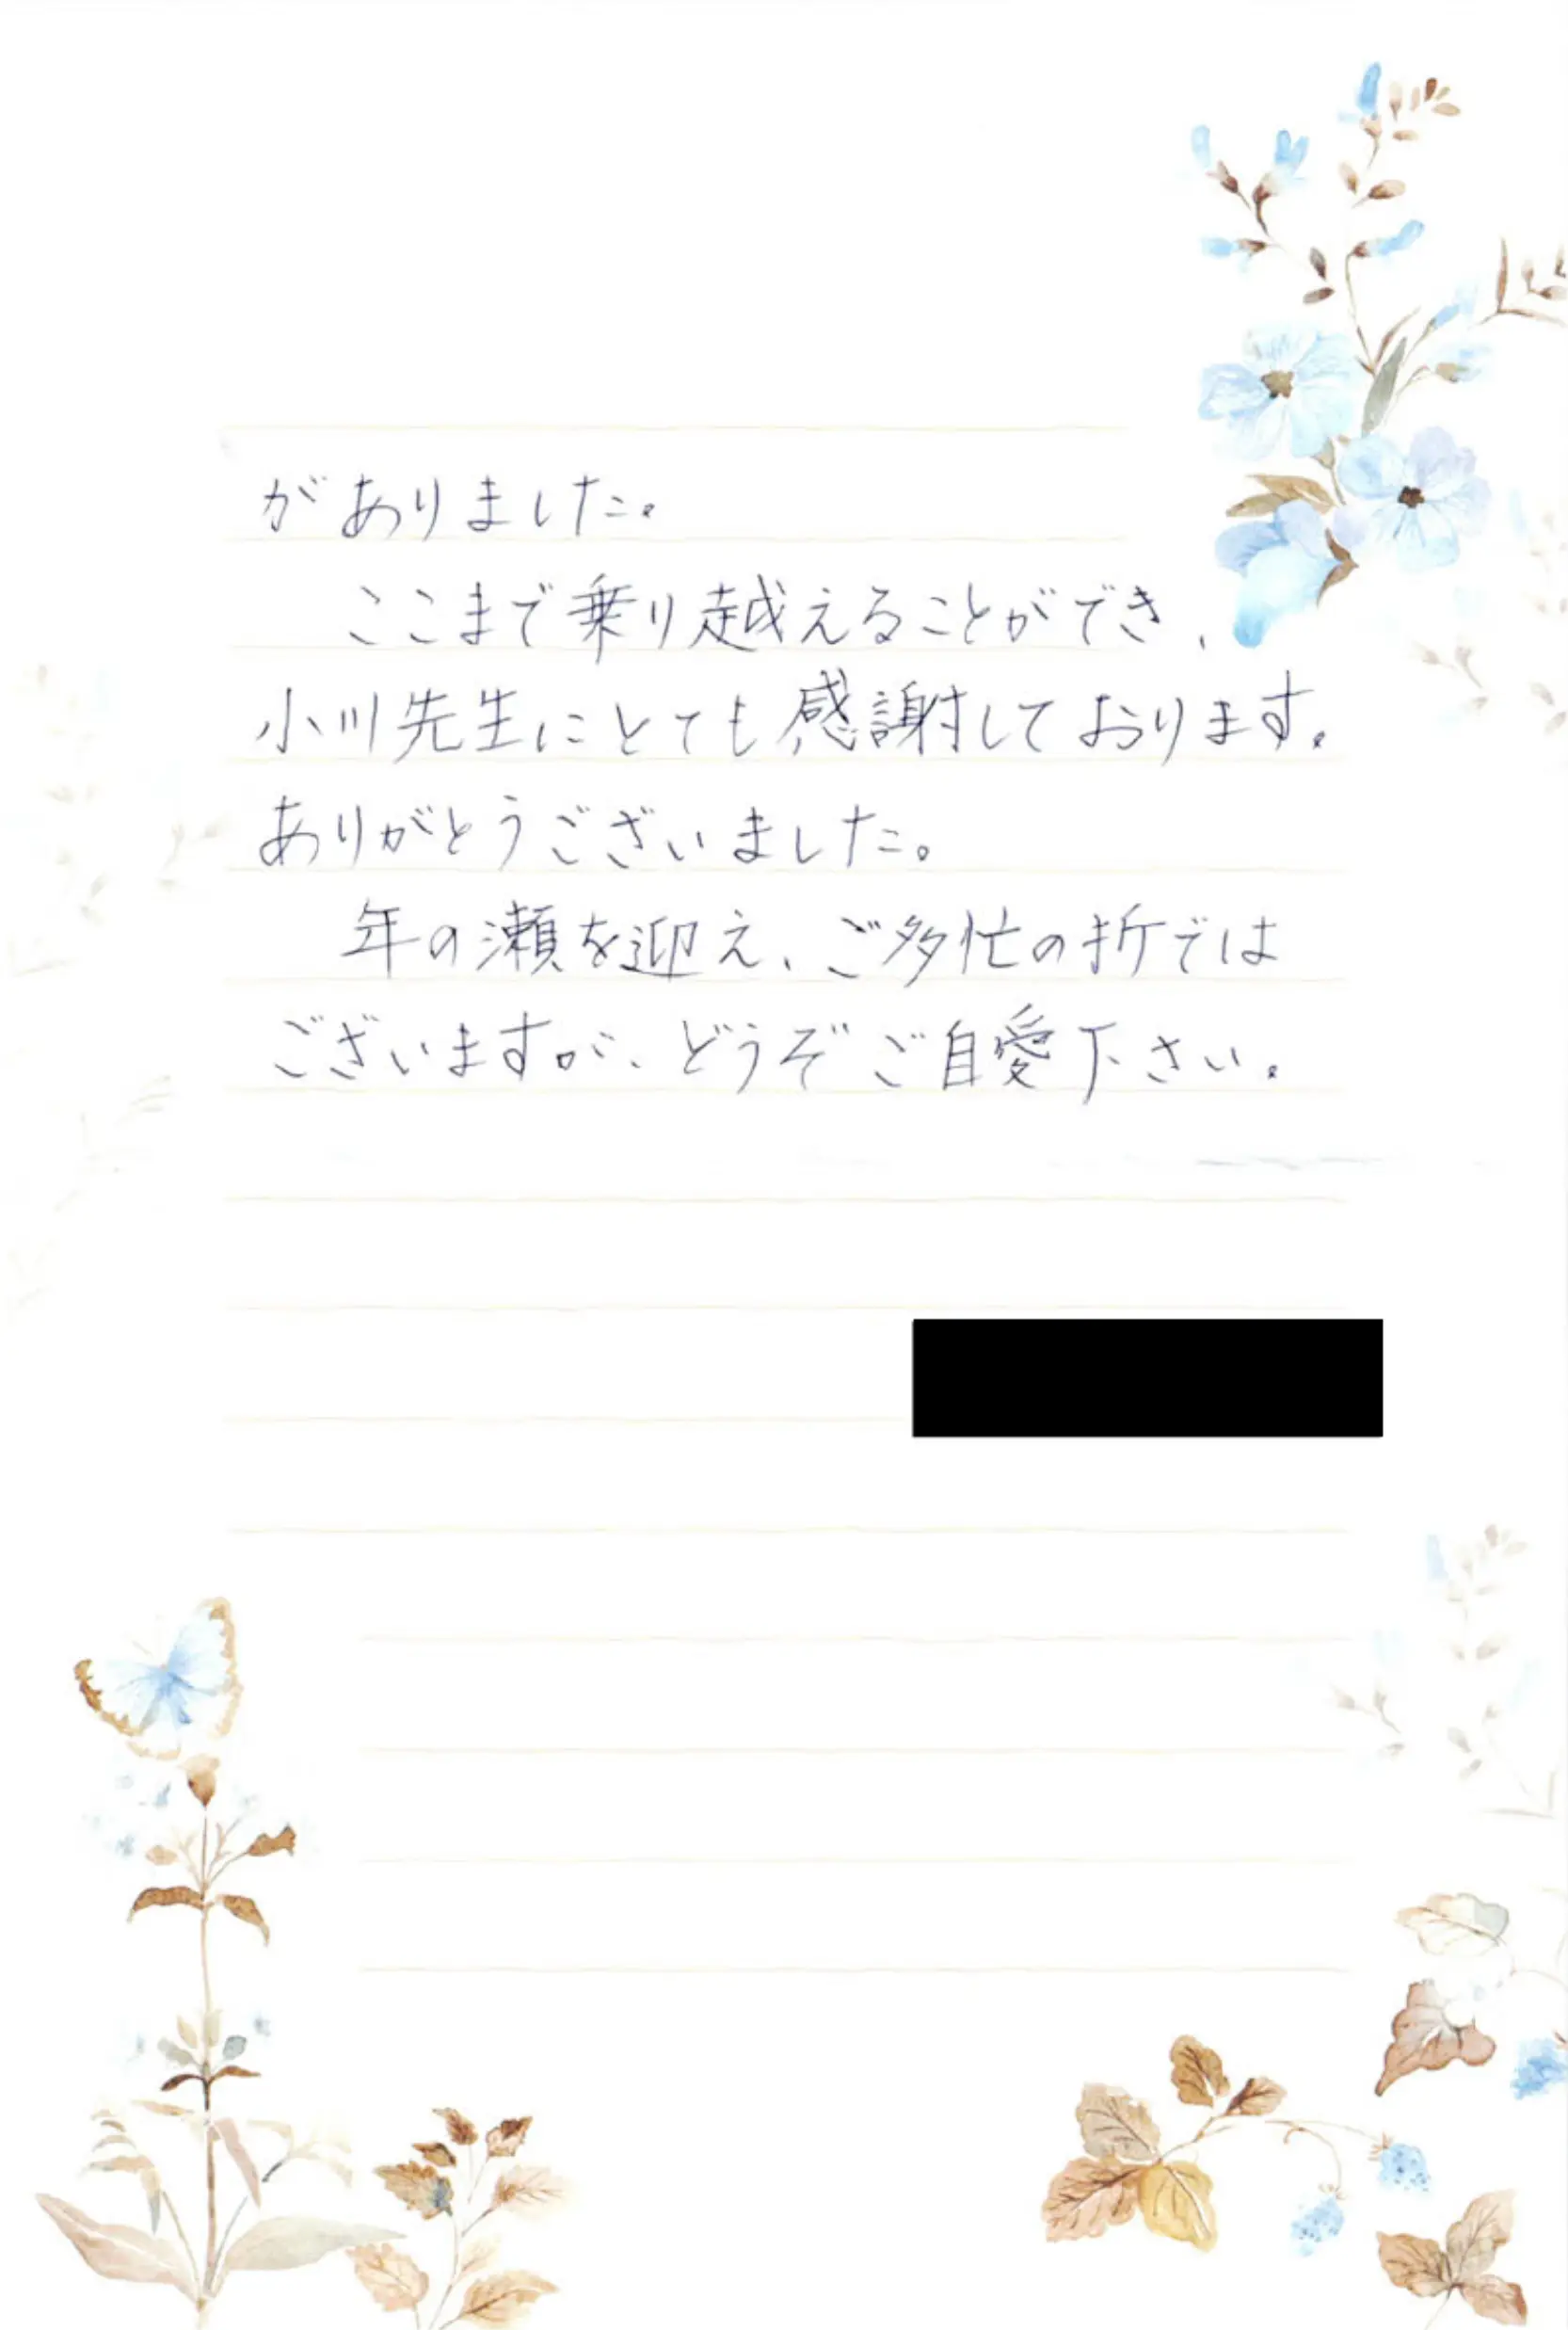 がありました。
ここまで乗り越えることができ、
小川先生にとても感謝しております。
ありがとうございました。
年の瀬を迎え、ご多忙の折では
ございますが、どうぞご自愛下さい。